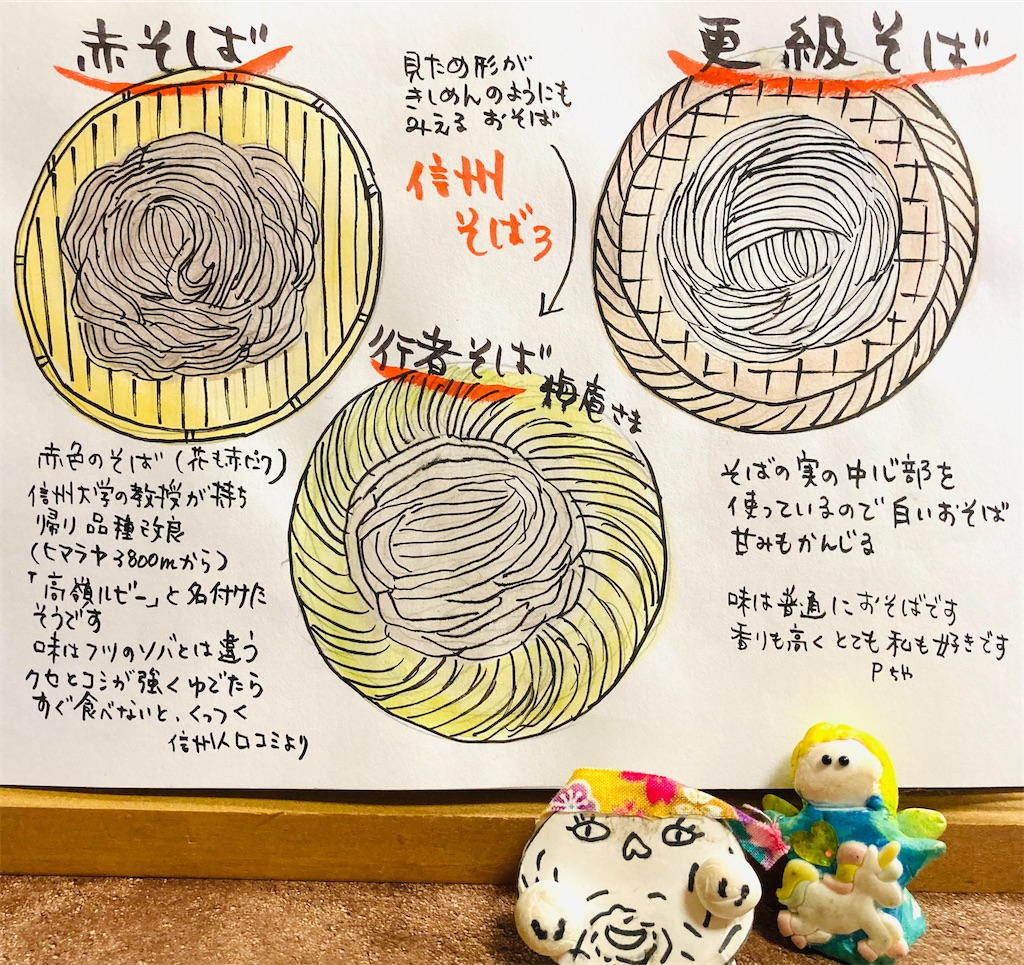 赤そば
見ため形が
きしめんのようにも
みえる おそば
信州
そば3
更級そば
行者そば
梅庵さま
赤色のそば(花も赤ピンク)
信州大学の教授が持ち
帰り品種改良
(ヒマラヤ3800mから)
「高嶺ルビー」と名付けた
そうです
味はフツのソバとは違う
クセとコシが強くゆでたら
すぐ食べないと、くっつく
信州人口コミより
そばの実の中心部を
使っているので白いおそば
甘みもかんじる
味は普通におそばです
香りも高くとても私も好きです
Pちゃ